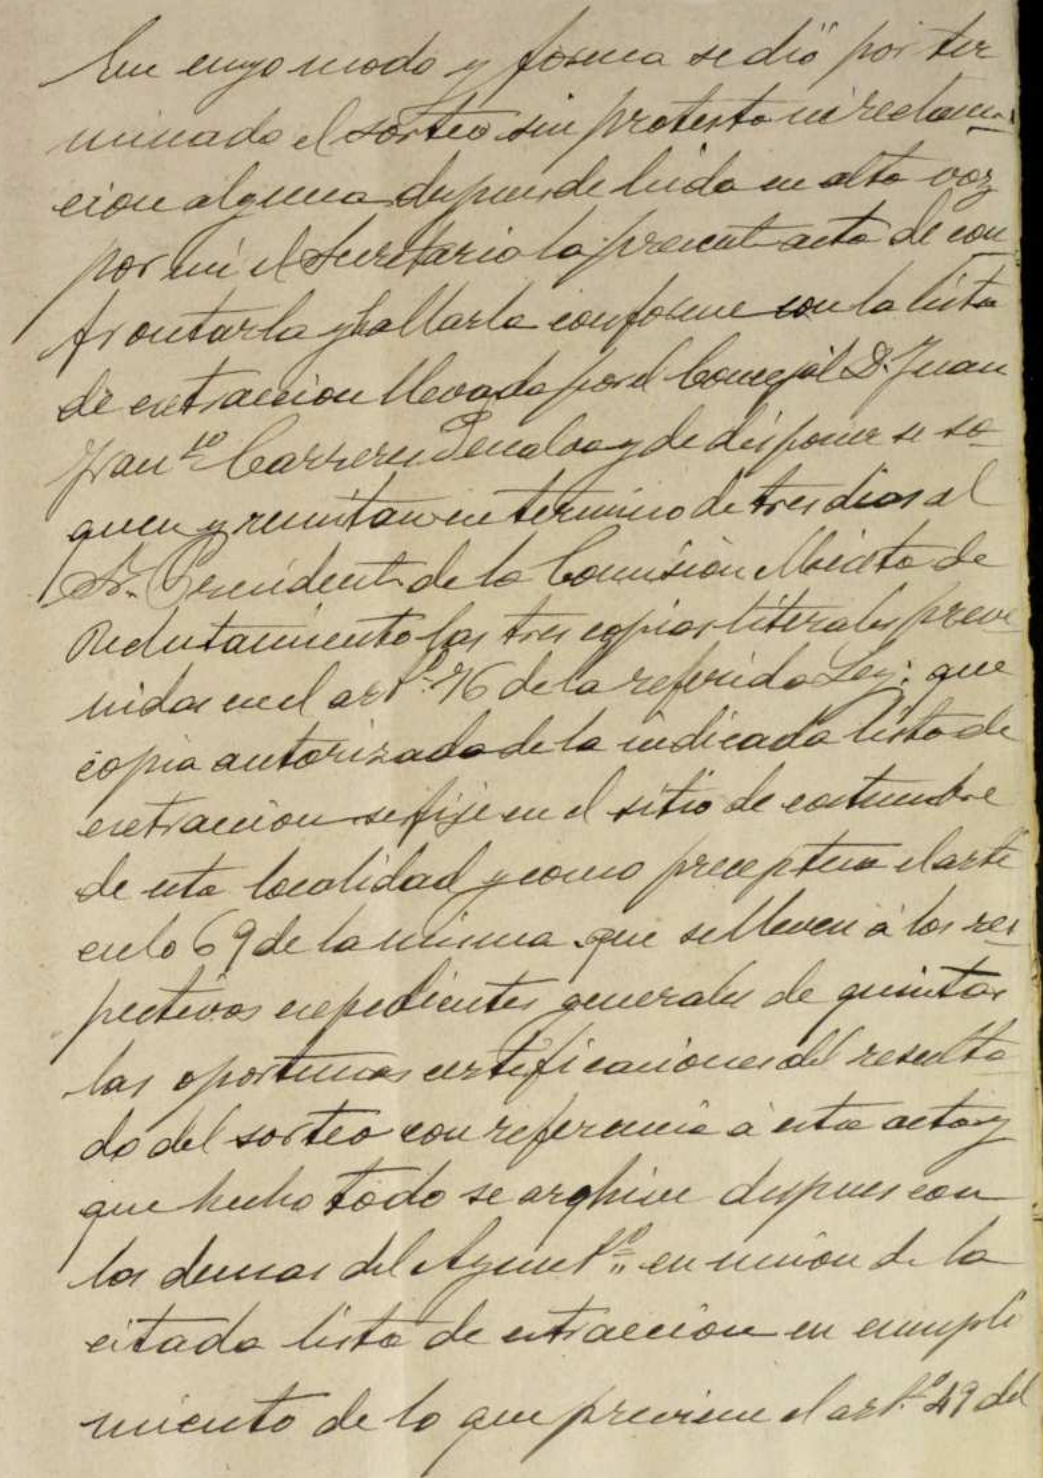 En cuyo modo y forma se dió por ter
minado el sorteo sin protesta ni reclama-
cion alguna despues de leida en alta voz
por mi el Secretario la present acta de con
frontarla y hallarla conforme con la lista
de extraccion llevada por el Concejal D. Juan
Fran.co Carreres Penalva y de disponer se sa-
quen y remitan en termino de tres dias al
Sr. President de la Comisión Mixta de
Reclutamiento las tres copias literales preve
nidas en el art.º 76 de la referida Ley: que
copia autorizada de la indicada lista de
extraccion se fije en el sitio de costumbre
de esta localidad y como preceptua el arti
culo 69 de la misma que se lleven á los res
pectivos expedientes generales de quintas
las oportunas certificaciones del resulta
do del sorteo con referencia á esta acta y
que hecho todo se archive despues con
los demas del Ayunt.º en unión de la
citada lista de extraccion en cumpli
miento de lo que previene el art.º 49 del